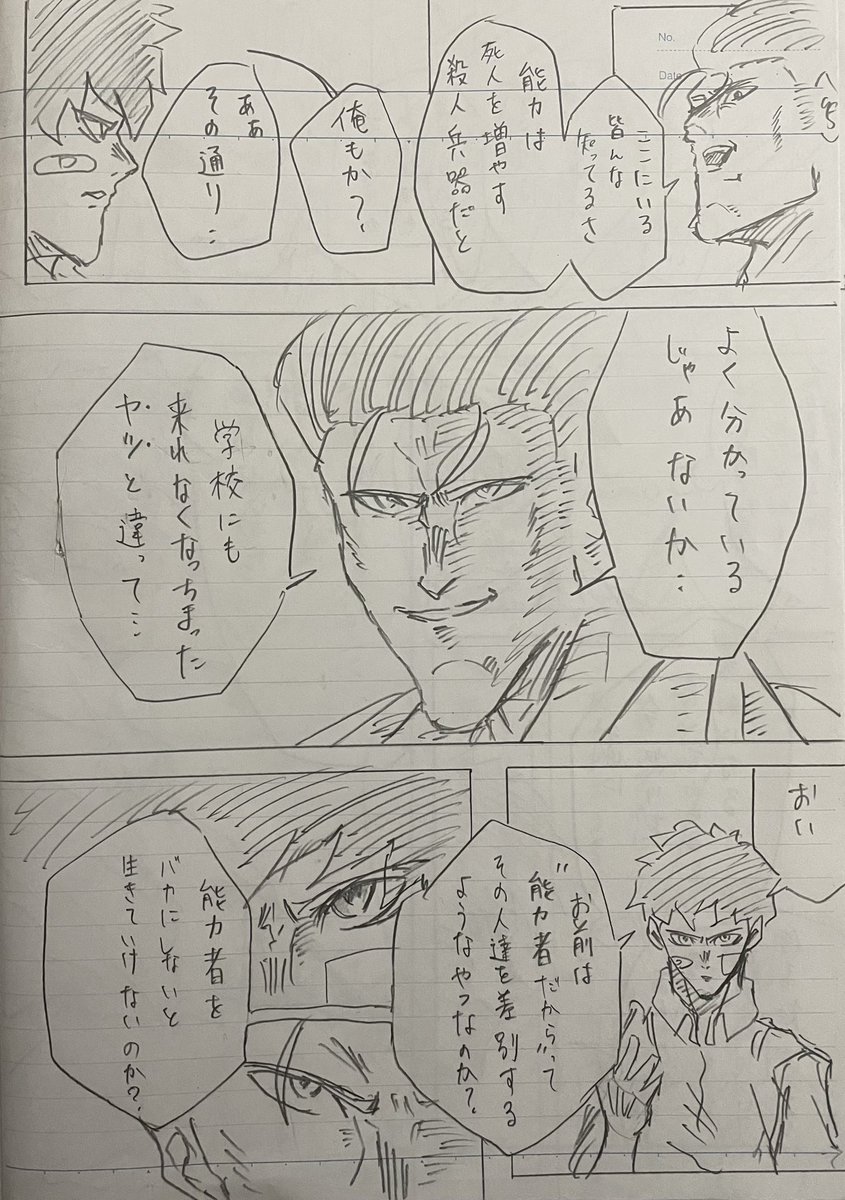 No.
Date
ここにいる
皆んな
知ってるさ
能力は
死人を増やす
殺人兵器だと
俺もか?
ああ
その通り‥
よく分かっている
じゃあないか‥
学校にも
来れなくなっちまった
ヤツと違って…
おい
お前は
"能力者だから"って
その人達を差別する
ようなやつなのか?
能力者を
バカにしないと
生きていけないのか?